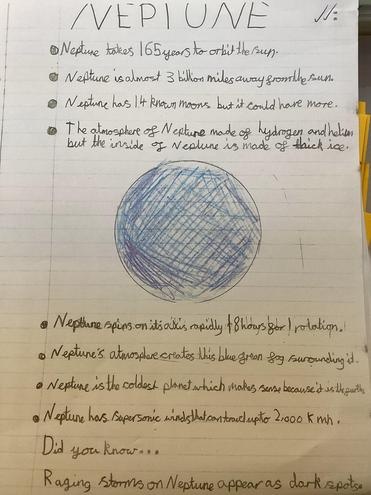 NEPTUNE
Neptune takes 165 years to orbit the sun.
Neptune is almost 3 billion miles away from the sun.
Neptune has 14 known moons but it could have more.
The atmosphere of Neptune made of hydrogen and helium
but the inside of Neptune is made of thick ice.
Neptune spins on its axis rapidly 18 hours for 1 rotation.
Neptune's atmosphere creates this blue green fog surounding it.
Neptune is the coldest planet which makes sense because it is the
Neptune has supersonic winds that can travel up to 2,000 Kmh.
Did you know...
Raging storms on Neptune appear as dark spots